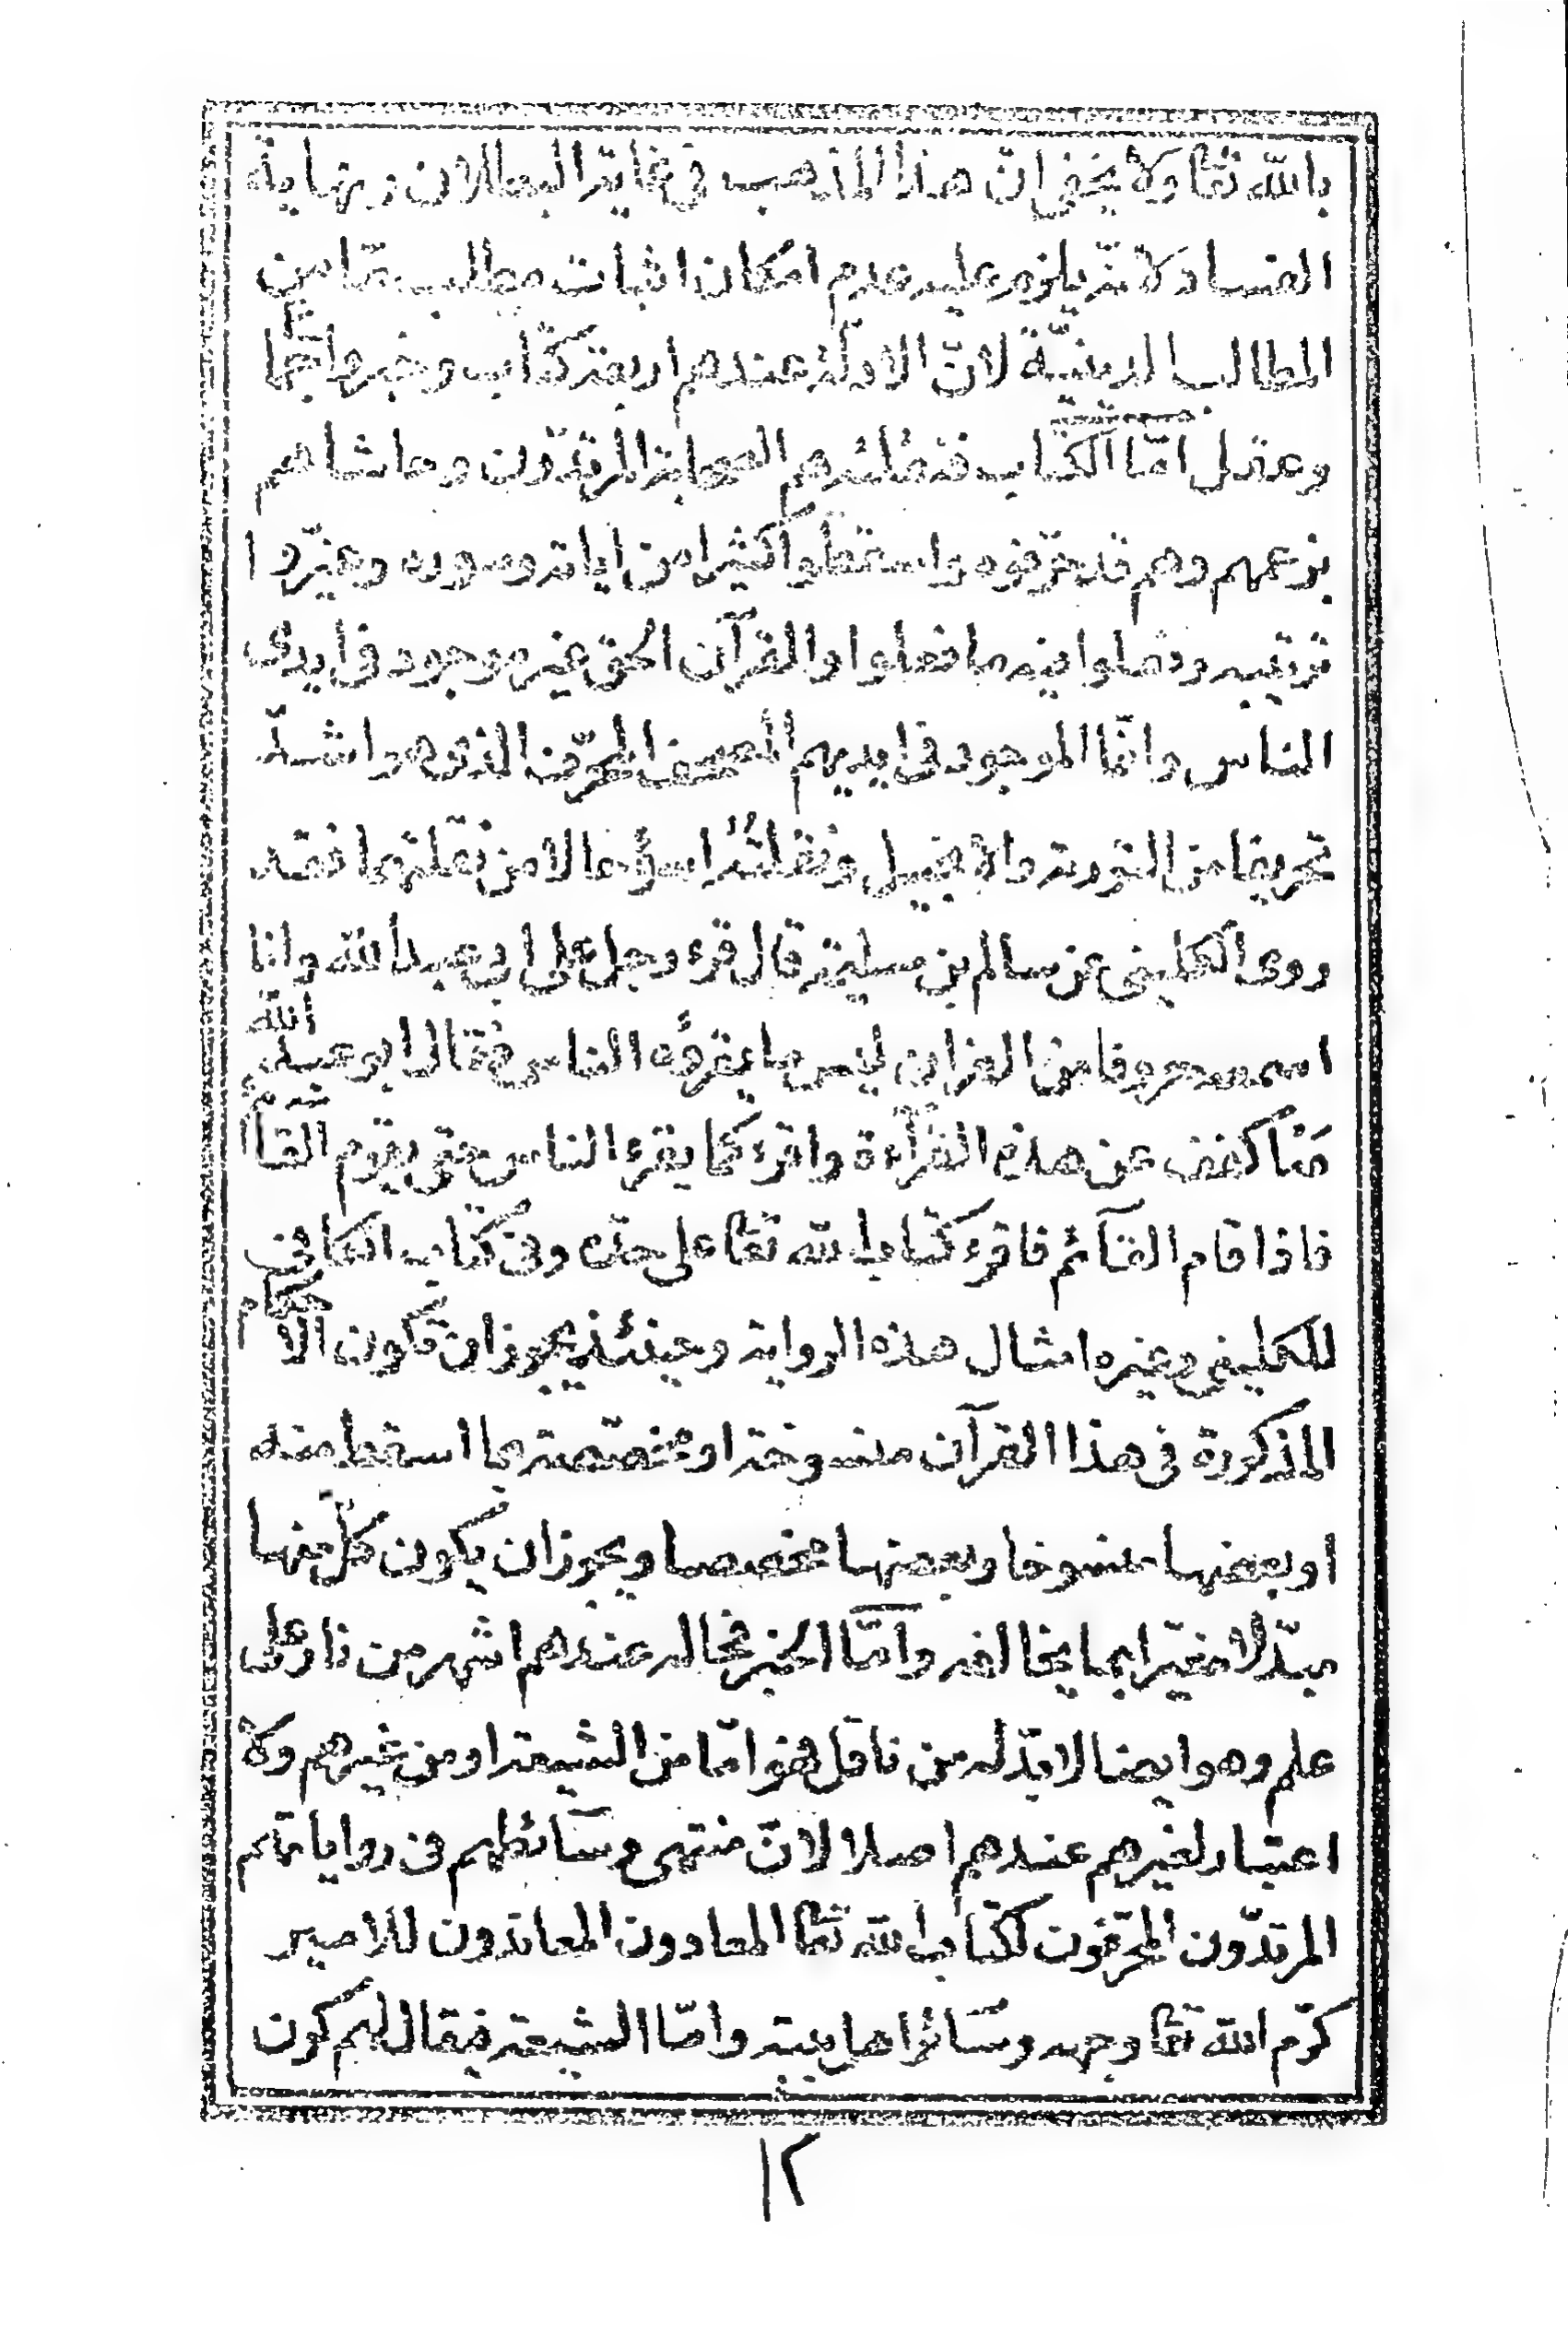 بالله تعا ولا يخفى انّ هذا المذهب فى غاية البطلان ونهاية
الفساد لانّه يلزم عليه عدم امكان اثبات مطلب ممّا من
المطالب الدينيّة لانّ الادلّة عندهم اربعة كتاب وخبر واجما
وعقل امّا الكتاب فنقلته هم الصحابة المرتدّون وحاشاهم
بزعمهم وهم قد حرّفوه واسقطوا كثيرا من اياته وسوره وغيّروا
ترتيبه وفعلوا فيه ما فعلوا والقرآن الحق غير موجود فى ايدى
الناس وانّما الموجود فى ايديهم المصحف المحرّف الذى هو اشدّ
تحريفا من التورية والانجيل ونقلته اسوء حالا من نقلتهما فقد
روى الكلينى عن سالم بن سلمة قال قرء رجل على ابى عبد الله وانا
اسمعه حروفا من القران ليس ما يقرؤه الناس فقال ابو عبد الله
مَه اكفف عن هذه القرآءة واقرء كما يقرء الناس حتى يقوم القائم
فاذا قام القآئم فاقرء كتاب الله تعا على حدّه وفى كتاب الكافى
للكلينى وغيره امثال هذه الرواية وحينئذ يجوز ان تكون الاحكام
المذكورة فى هذا القرآن منسوخة او مخصّصة بما اسقط منه
او بعضها منسوخا وبعضها مخصصا ويجوز ان يكون كلّ منها
مبدّلا مغيّرا بما يخالفه وامّا الخبر فحاله عندهم اشهر من نار على
علم وهو ايضا لا بدّ له من ناقل فهو امّا من الشيعة او من غيرهم ولا
اعتبار لغيرهم عندهم اصلا لانّ منتهى وسآئطهم فى رواياتهم
المرتدّون المحرّفون لكتاب الله تعا المعادون المعاندون للامير
كرّم الله تعا وجهه وسآئر اهل بيته وامّا الشيعة فيقال لهم كون
١٢